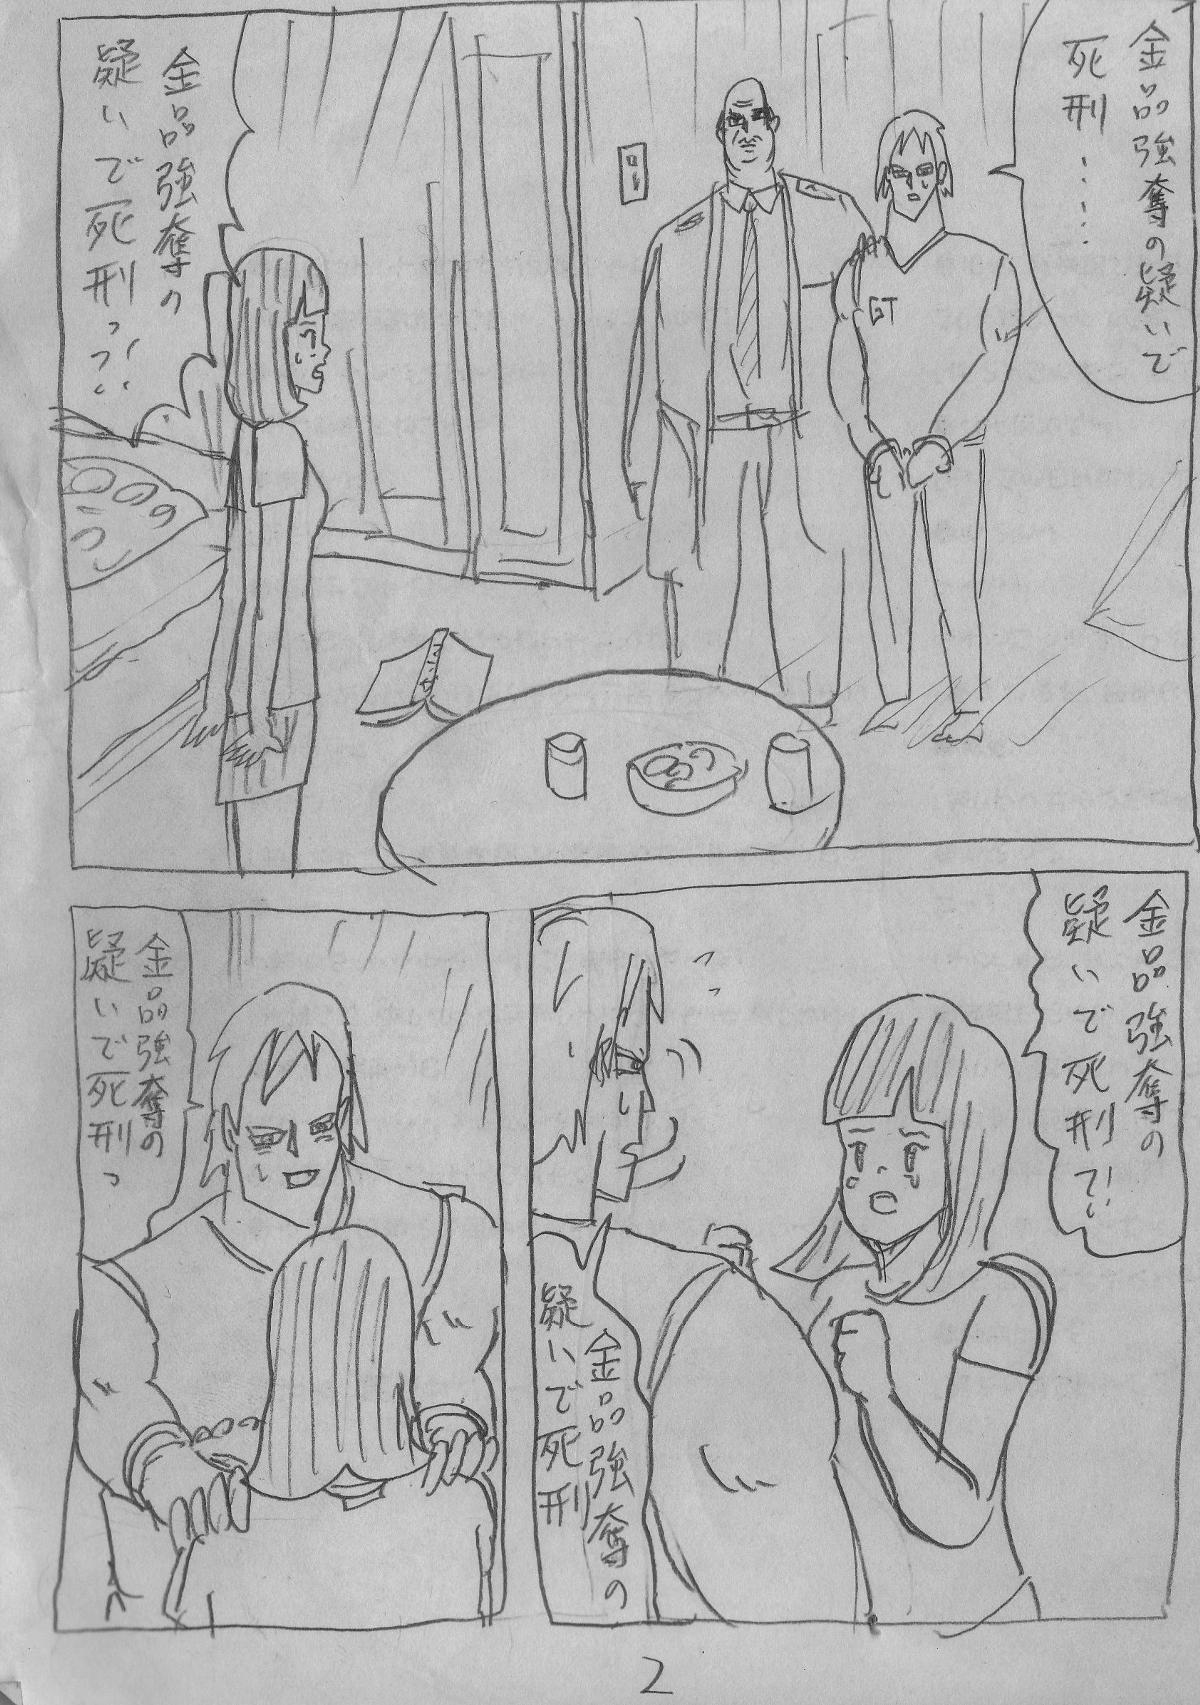 金品強奪の疑いで
死刑……
GT
金品強奪の
疑いで死刑って!
金品強奪の
疑いで死刑て!
金品強奪の
疑いで死刑
金品強奪の
疑いで死刑っ
2